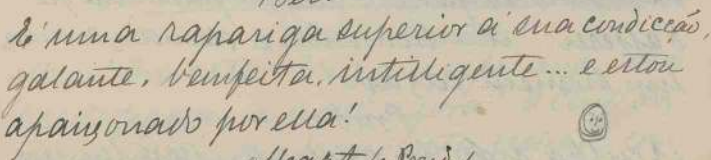 É uma rapariga superior á sua condicção,
galante, bemfeita, intilligente... e estou
apaixonado por ella!